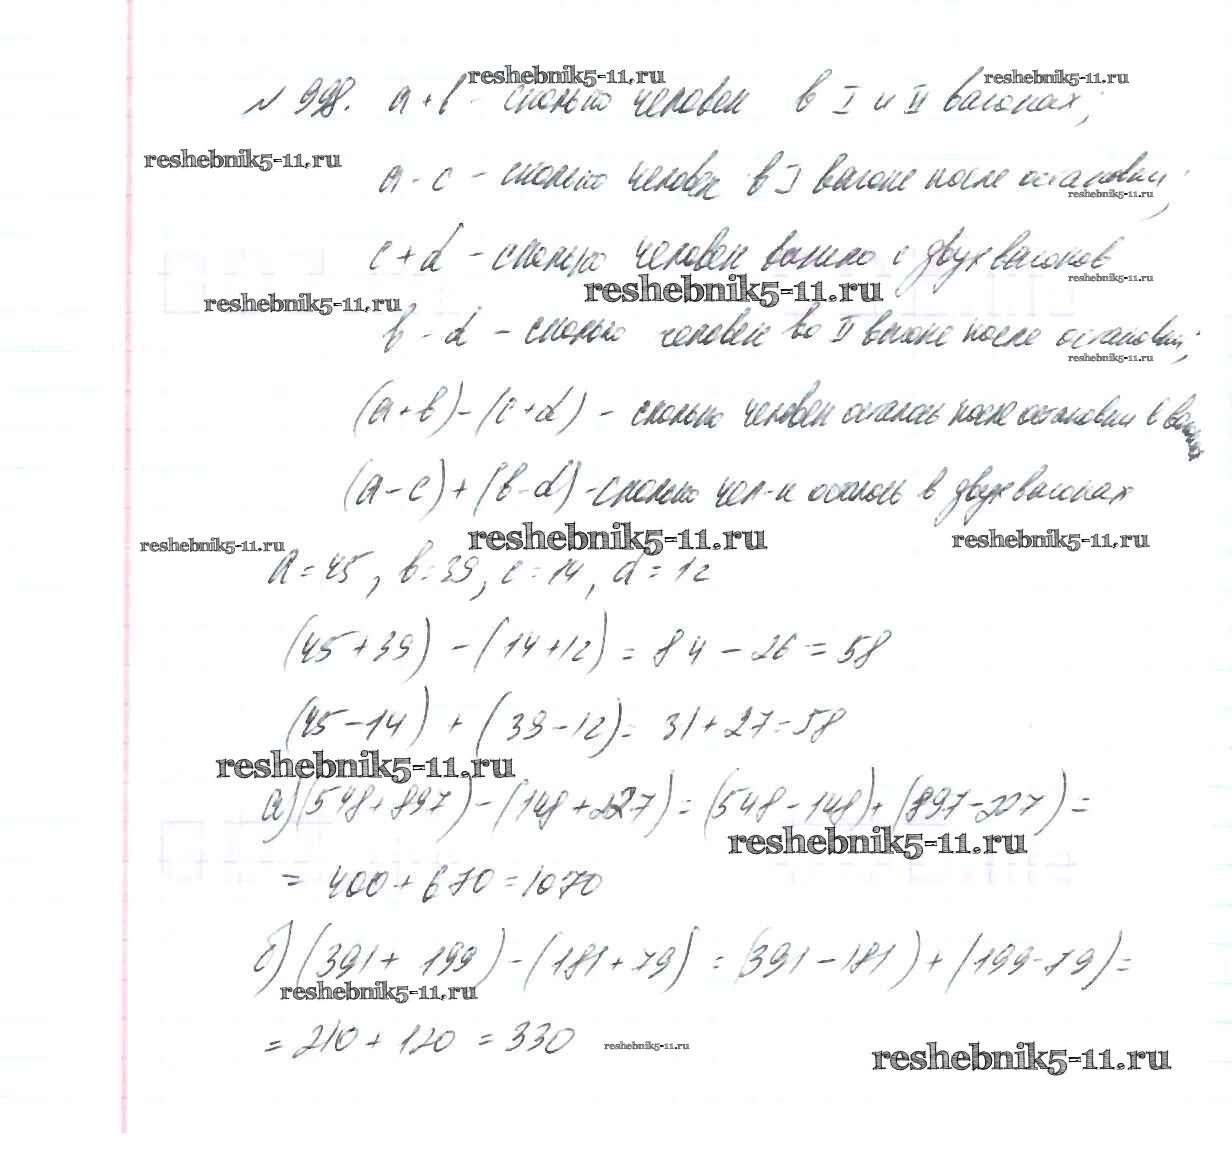 reshebnik5-11.ru reshebnik5-11.ru
№ 998. a + b - сколько человек в I и II вагонах;
reshebnik5-11.ru
a - c - сколько человек в I вагоне после остановки;
reshebnik5-11.ru
c + d - сколько человек вышло с двух вагонов
reshebnik5-11.ru reshebnik5-11.ru reshebnik5-11.ru
b - d - сколько человек во II вагоне после остановки;
reshebnik5-11.ru
(a + b) - (c + d) - сколько человек осталось после остановки в вагонах
(a - c) + (b - d) - сколько чел-к осталось в двух вагонах
reshebnik5-11.ru reshebnik5-11.ru reshebnik5-11.ru
a = 45, b = 39, c = 14, d = 12
(45 + 39) - (14 + 12) = 84 - 26 = 58
(45 - 14) + (39 - 12) = 31 + 27 = 58
reshebnik5-11.ru
а) (548 + 897) - (148 + 227) = (548 - 148) + (897 - 227) =
reshebnik5-11.ru
= 400 + 670 = 1070
б) (391 + 199) - (181 + 79) = (391 - 181) + (199 - 79) =
reshebnik5-11.ru
= 210 + 120 = 330 reshebnik5-11.ru
reshebnik5-11.ru